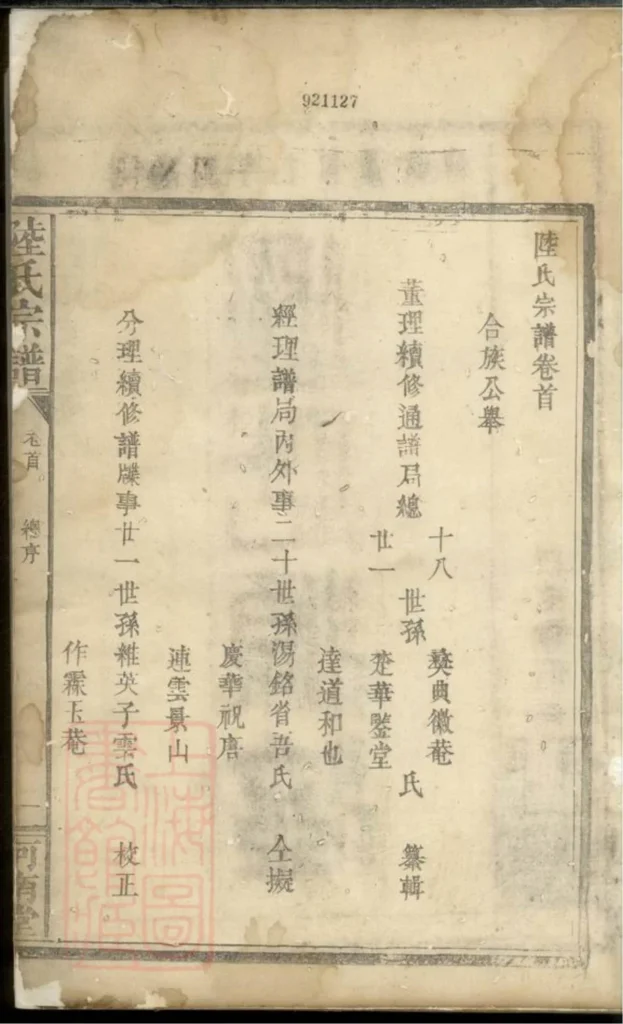 921127
陸氏宗譜卷首
合族公舉
董理續修通譜局總
十八
廿一
世孫
奬典徽菴
楚華鑒堂
氏
纂輯
達道和也
經理譜局內外事二十世孫湯銘省吾氏
仝擬
慶華祝唐
連雲景山
分理續修譜牒事廿一世孫維英子雲氏
校正
作霖玉菴
陸氏宗譜
卷首
總序
一
河南堂
上海圖書館藏